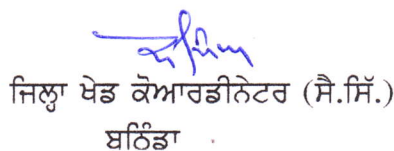 ਜਿਲ੍ਹਾ ਖੇਡ ਕੋਆਰਡੀਨੇਟਰ (ਸੈ.ਸਿੱ.)
ਬਠਿੰਡਾ